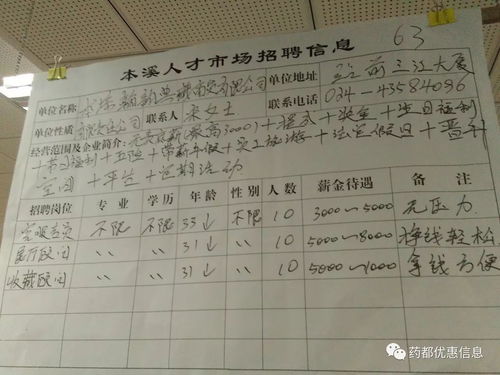 63
本溪人才市场招聘信息
单位性质
单位名称 有限公司 单位地址 站前三江大厦
单位性质 有限公司 联系人 宋女士 联系电话 024-43584096
经营范围及企业简介: 无责底薪(最高3000)+提成+奖金+生日福利
+节日福利+五险+带薪年假+员工旅游+法定假日+晋升
空间+ +定期活动
招聘岗位 专业 学历 年龄 性别 人数 薪金待遇 备注
客服专员 不限 不限 35↓ 不限 10 3000~5000 无压力
顾问 〃 〃 31↓ 〃 10 5000~8000 挣钱轻松
收藏顾问 〃 〃 31↓ 〃 10 5000~1000 拿钱方便
药都优惠信息